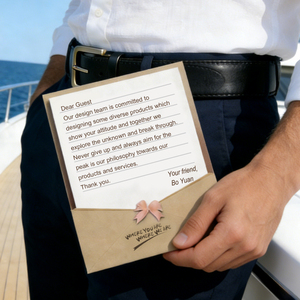 Dear Guest
Our design team is committed to
designing some diverse products which
show your altitude and together we
explore the unknown and break through.
Never give up and always aim for the
peak is our philosophy towards our
products and services.
Thank you.
Your friend,
Bo Yuan